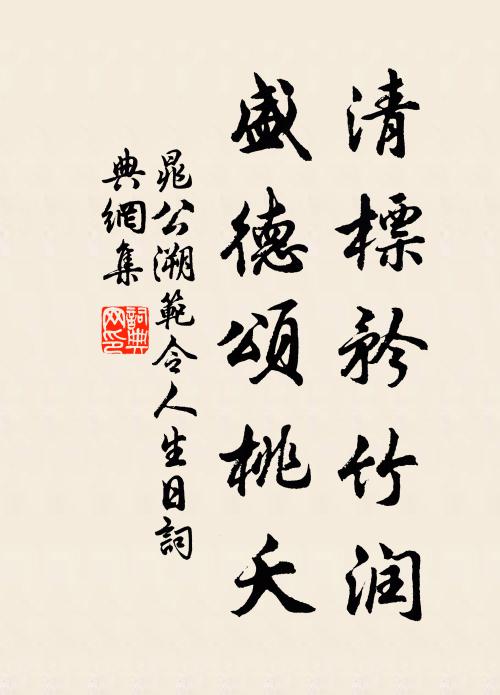 清標矜竹潤
盛德頌桃夭
晁公溯範令人生日詞
典網集
詞典网印